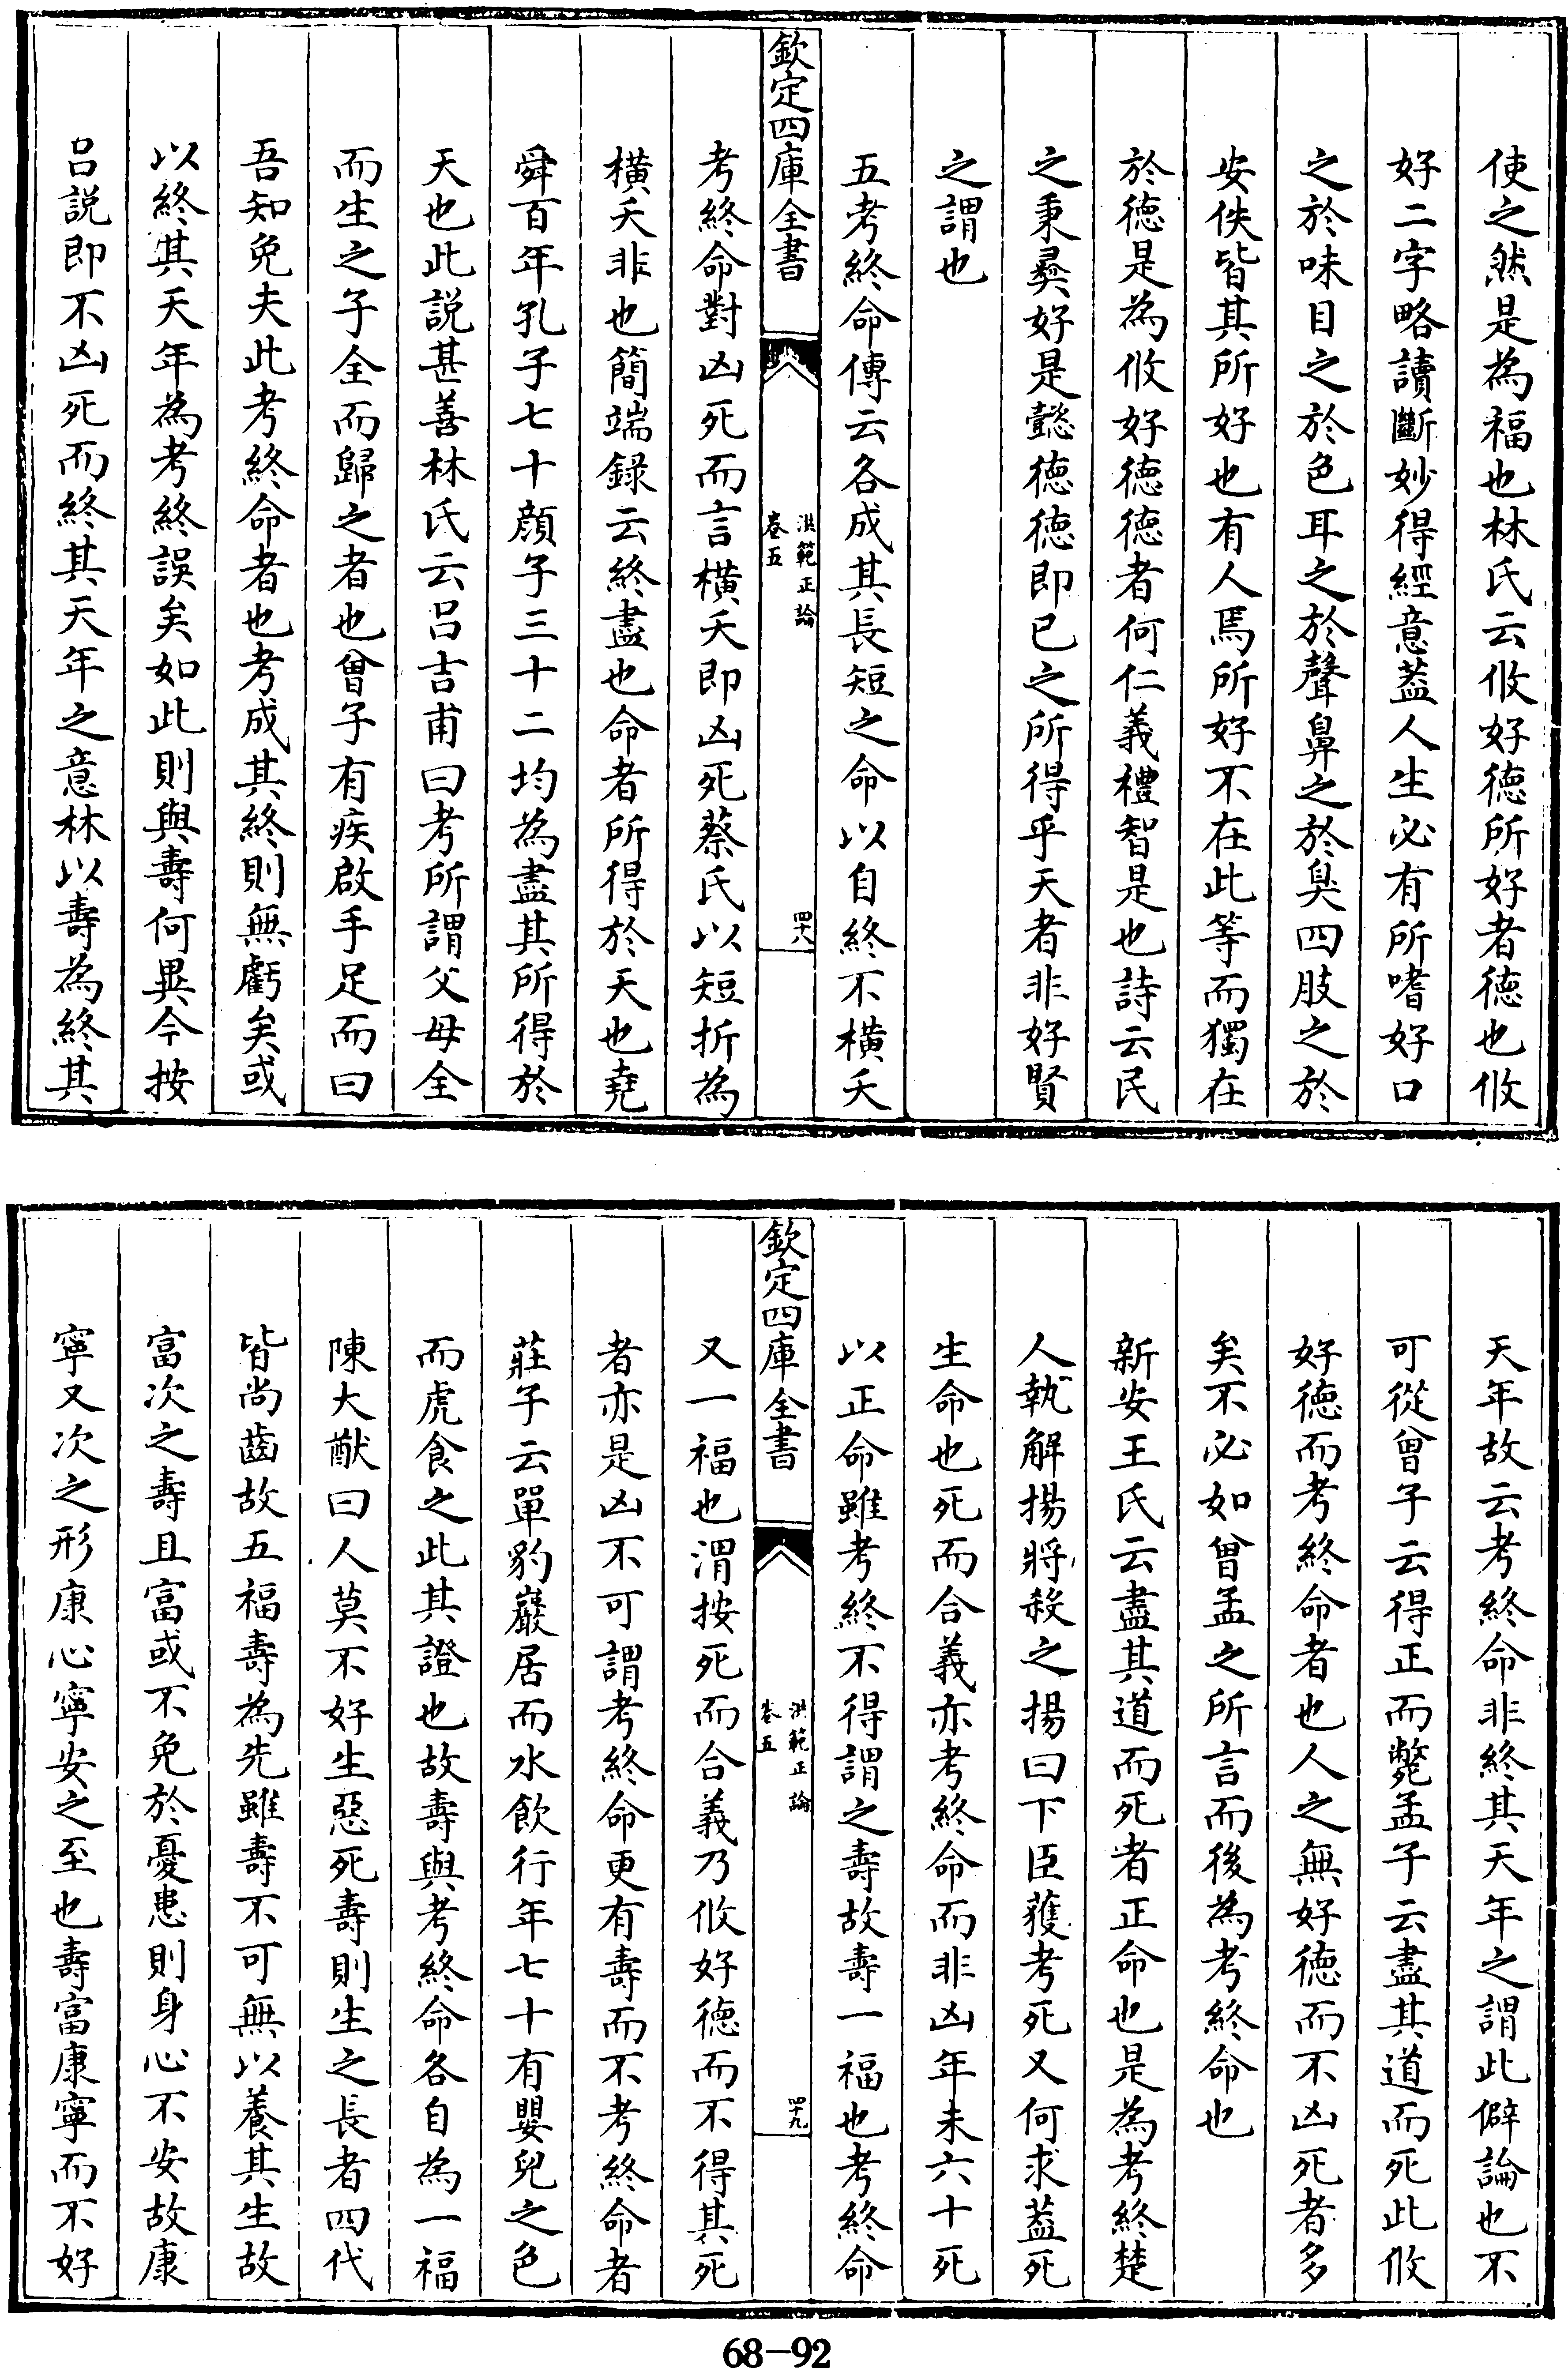 使之然是為福也林氏云攸好徳所好者徳也攸
好二字略讀斷妙得經意葢人生必有所嗜好口
之於味目之於色耳之於聲鼻之於臭四肢之於
安佚皆其所好也有人焉所好不在此等而獨在
於徳是為攸好徳徳者何仁義禮智是也詩云民
之秉彛好是懿徳徳即已之所得乎天者非好賢
之謂也
五考終命傳云各成其長短之命以自終不横夭
欽定四庫全書
洪範正論
卷五
四十八
考終命對凶死而言横夭即凶死蔡氏以短折為
横夭非也簡端録云終盡也命者所得於天也堯
舜百年孔子七十顔子三十二均為盡其所得於
天也此說甚善林氏云吕吉甫曰考所謂父母全
而生之子全而歸之者也曾子有疾啟手足而曰
吾知免夫此考終命者也考成其終則無虧矣或
以終其天年為考終誤矣如此則與壽何異今按
吕説即不凶死而終其天年之意林以壽為終其
天年故云考終命非終其天年之謂此僻論也不
可從曾子云得正而斃孟子云盡其道而死此攸
好徳而考終命者也人之無好徳而不凶死者多
矣不必如曾孟之所言而後為考終命也
新安王氏云盡其道而死者正命也是為考終楚
人執解揚將殺之揚曰下臣獲考死又何求葢死
生命也死而合義亦考終命而非凶年未六十死
以正命雖考終不得謂之壽故壽一福也考終命
欽定四庫全書
洪範正論
卷五
四十九
又一福也渭按死而合義乃攸好徳而不得其死
者亦是凶不可謂考終命更有壽而不考終命者
莊子云單豹巖居而水飲行年七十有嬰兒之色
而虎食之此其證也故壽與考終命各自為一福
陳大猷曰人莫不好生惡死壽則生之長者四代
皆尚齒故五福壽為先雖壽不可無以養其生故
富次之壽且富或不免於憂患則身心不安故康
寧又次之形康心寧安之至也壽富康寧而不好
68-92